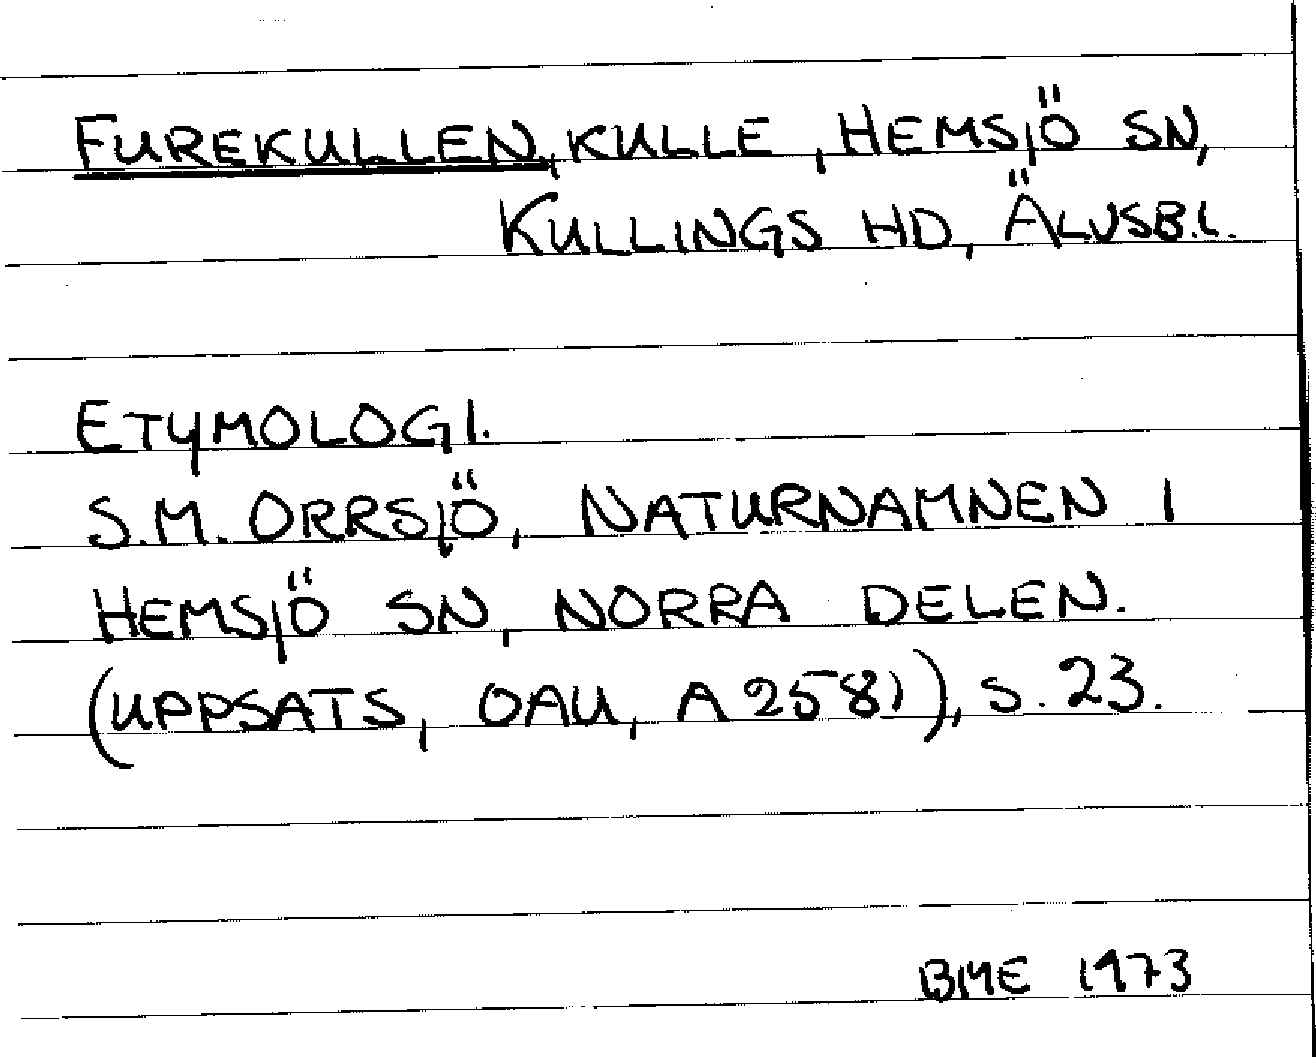 FUREKULLEN, KULLE, HEMSJÖ SN,
KULLINGS HD, ÄLVSB.L.
ETYMOLOGI.
S.M. ORRSJÖ, NATURNAMNEN I
HEMSJÖ SN, NORRA DELEN.
(UPPSATS, OAU, A 2581), S. 23.
BME 1973